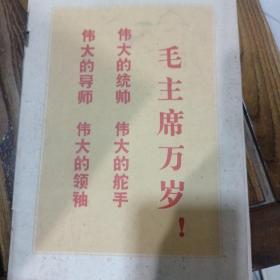 毛主席万岁!
伟大的统帅 伟大的舵手
伟大的导师 伟大的领袖